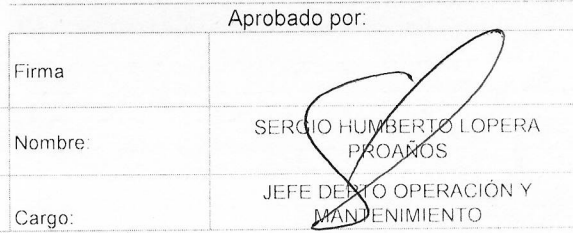 Aprobado por:
Firma
Nombre: SERGIO HUMBERTO LOPERA
PROAÑOS
JEFE DEPTO OPERACIÓN Y
Cargo: MANTENIMIENTO